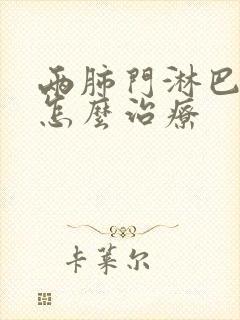 两肺門淋巴
怎麼治療
卡萊尔